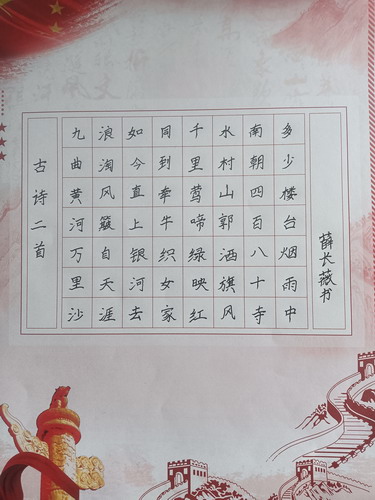 古诗二首
九曲黄河万里沙
浪淘风簸自天涯
如今直上银河去
同到牵牛织女家
千里莺啼绿映红
水村山郭洒旗风
南朝四百八十寺
多少楼台烟雨中
薛长藏书